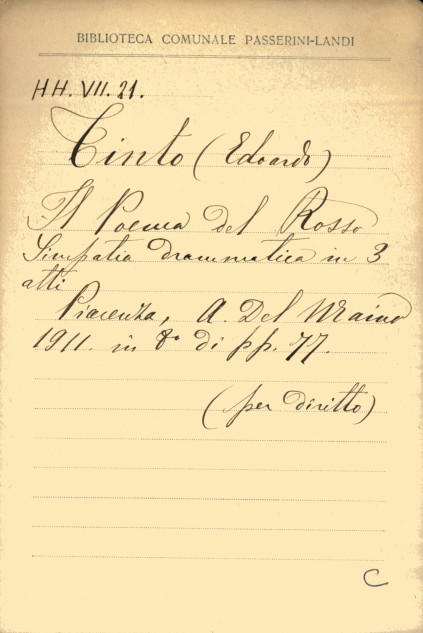 BIBLIOTECA COMUNALE PASSERINI-LANDI
HH. VII. 21.
Tinto (Edoardo)
Il Poema del Rosso
Simpatia drammatica in 3
atti
Piacenza, A. Del Maino
1911. in 8° di pp. 77.
(per diritto)
C